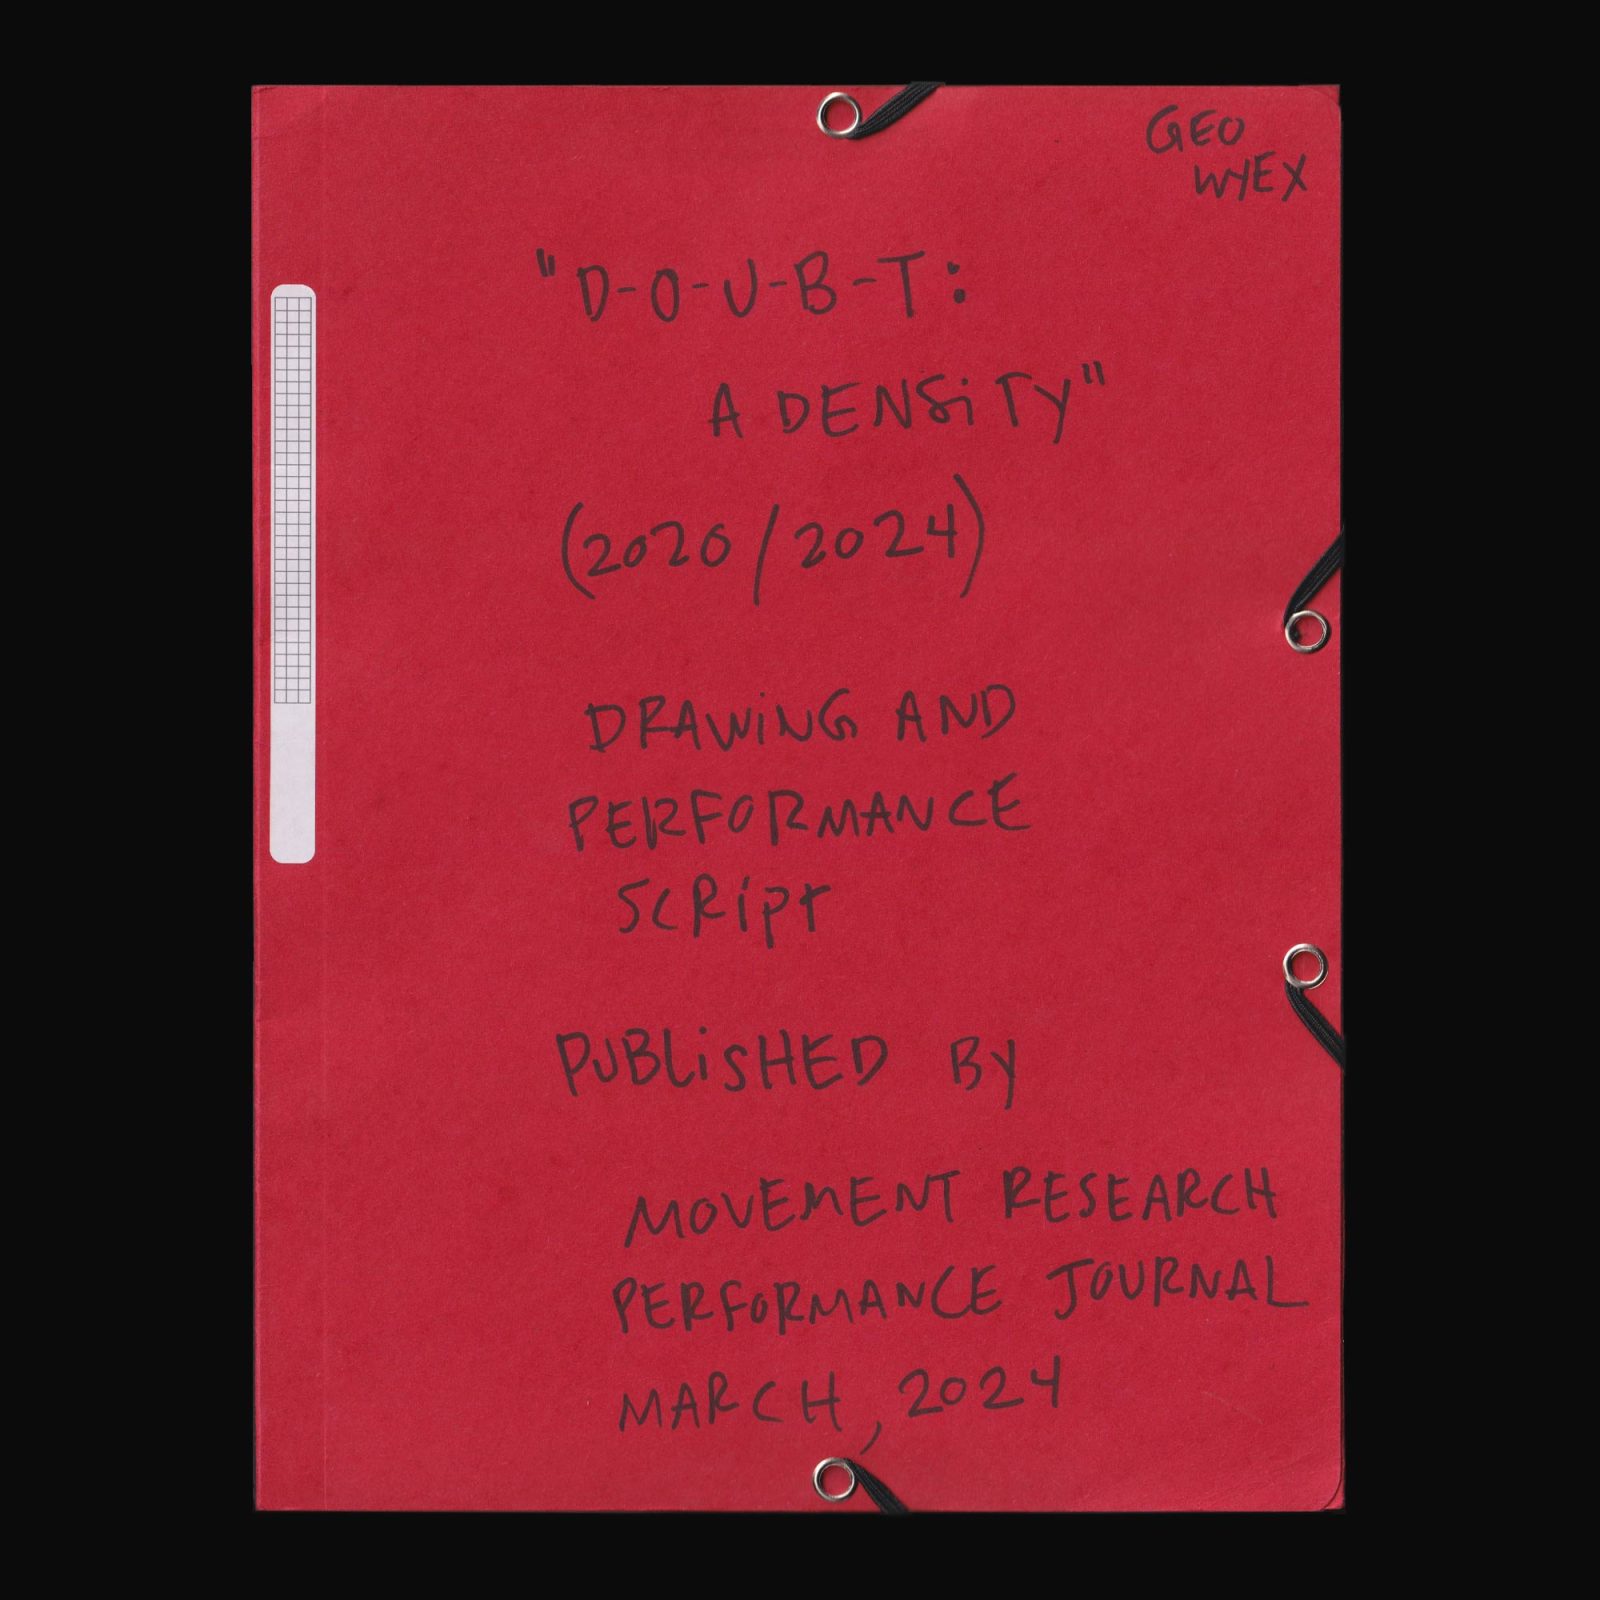 GEO
WYEX
"D-O-U-B-T:
A DENSiTy"
(2020/2024)
DRAWiNG AND
PERFORMANCE
SCRipt
PUBLiSHED By
MOVEMENT RESEARCH
PERFORMANCE JOURNAL
MARCH, 2024